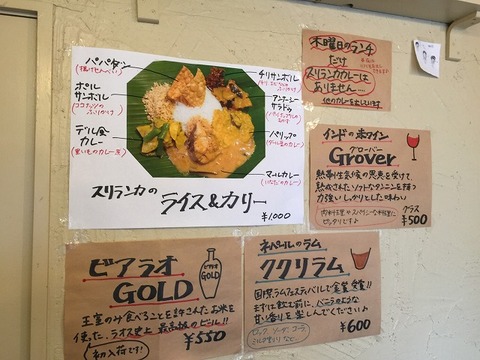 パパダン
(揚げせんべい)
ポル
サンボル
(ココナッツの
ふりかけ)
デル金
カレー
チリサンボル
アンナーシ
サラドゥ
パリップ
マールカレー
スリランカの
ライス&カリー
¥1000
木曜日のランチ
だけ
スリランカカレーは
ありません…
他のカレーをお出ししています
インドの赤ワイン
グローバー
Grover
熱帯性気候の恩恵を受けて、
熟成されたソフトなタンニンを持つ
力強いしっかりとした味わい
グラス
¥500
ビアラオ
GOLD
王室のみ食べることを許されたお米を
使った、ラオス史上最高級のビール!!
初入荷です!
¥550
ネパールのラム
ククリラム
国際ラムフェスティバルで金賞受賞!!
まずは飲む前に、バニラのような
甘い香りを楽しんでください♪
ロック、ソーダ、コーラ
ミルク割りなど…
¥600